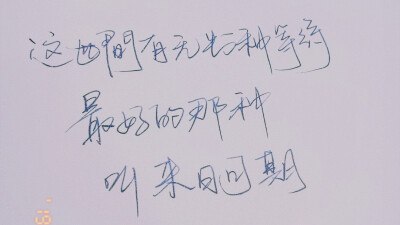 这世間有无数种等待
最好的那种
叫来日可期